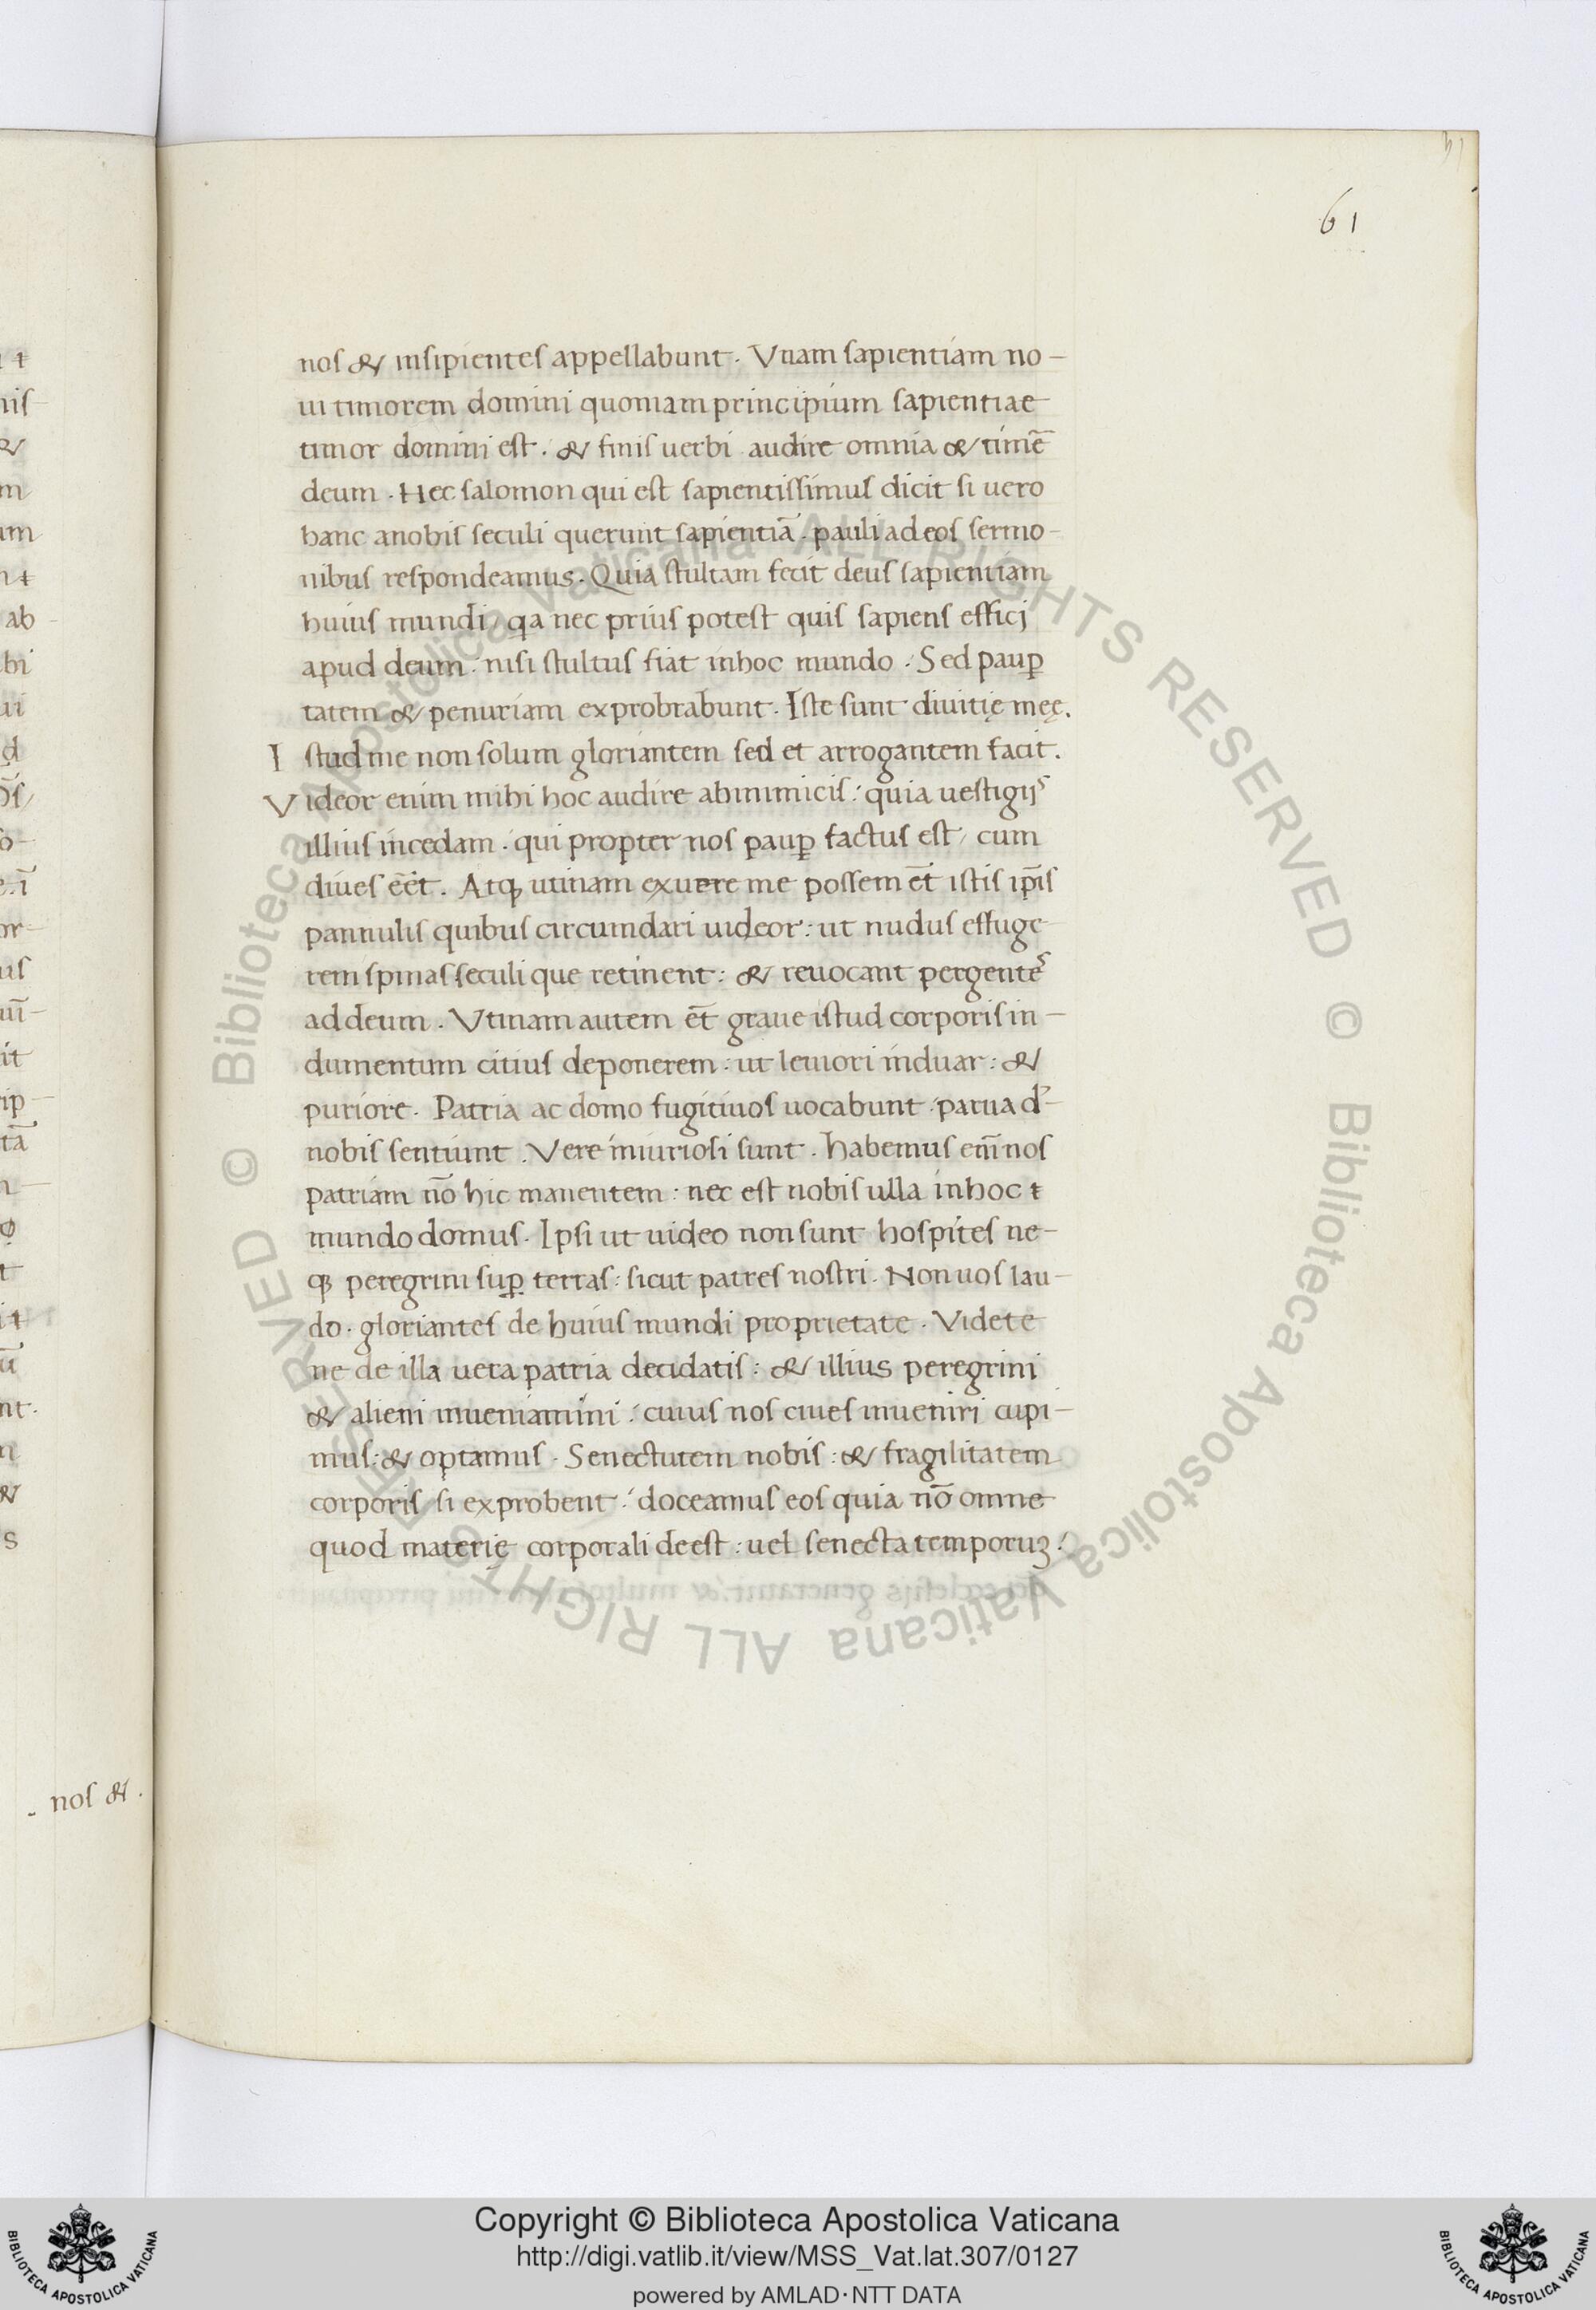 61
nos & insipientes appellabunt. Vnam sapientiam no-
ui timorem domini quoniam principium sapientiae
timor domini est. & finis uerbi audire omnia & timē
deum. Hec salomon qui est sapientissimus dicit si uero
hanc anobis seculi querunt sapientiā. pauli ad eos sermo-
nibus respondeamus. Quia stultam fecit deus sapientiam
huius mundi, qa nec prius potest quis sapiens efficj
apud deum: nisi stultus fiat inhoc mundo. Sed paup̱
tatem & penuriam exprobrabunt. Iste sunt diuitię meę.
I stud me non solum gloriantem sed et arrogantem facit.
Videor enim mihi hoc audire abinimicis: quia uestigijs
illius incedam. qui propter nos paup̱ factus est, cum
diues eēt. Atq; utinam exuere me possem et̄ istis ip̄is
pannulis quibus circumdari uideor: ut nudus effuge
rem spinas seculi que retinent: & reuocant pergentes
ad deum. Vtinam autem et̄ graue istud corporis in-
dumentum citius deponerem: ut leuiori induar: &
puriore. Patria ac domo fugitiuos uocabunt: parua d̄-
nobis sentiunt. Vere iniuriosi sunt. habemus em̄ nos
patriam nō hic manentem: nec est nobis ulla inhoc
mundo domus. Ipsi ut uideo non sunt hospites ne-
q; peregrini sup̱ terras: sicut patres nostri. Non uos lau-
do. gloriantes de huius mundi proprietate. Videte
ne de illa uera patria decidatis: & illius peregrini
& alieni inueniamini: cuius nos ciues inueniri cupi-
mus: & optamus. Senectutem nobis: & fragilitatem
corporis si exprobent: doceamus eos quia nō omne
quod materię corporali deest: uel senecta temporuꝫ:
nos &.
© Biblioteca Apostolica Vaticana ALL RIGHTS RESERVED © Biblioteca Apostolica Vaticana ALL RIGHTS RESERVED
Copyright © Biblioteca Apostolica Vaticana
http://digi.vatlib.it/view/MSS_Vat.lat.307/0127
powered by AMLAD·NTT DATA
BIBLIOTECA APOSTOLICA VATICANA
BIBLIOTECA APOSTOLICA VATICANA